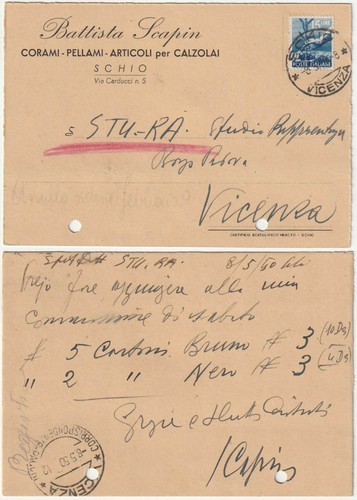 Battista Scapin
CORAMI - PELLAMI - ARTICOLI per CALZOLAI
SCHIO
Via Carducci n. 5
15 LIRE
POSTE ITALIANE
VICENZA
S STU-RA. Studio
Borgo Padova
Vicenza
Spett. STU.RA. 8/5/50
Prego fare aggiungere alla mia
commissione di sabato
# 5 Cartoni Bruno # 3 (10 Ds)
" 2 " Nero # 3 (4 Ds)
Grazie e saluti distinti
Scapin
VICENZA CORRISPONDENZE
-8.5.50.12